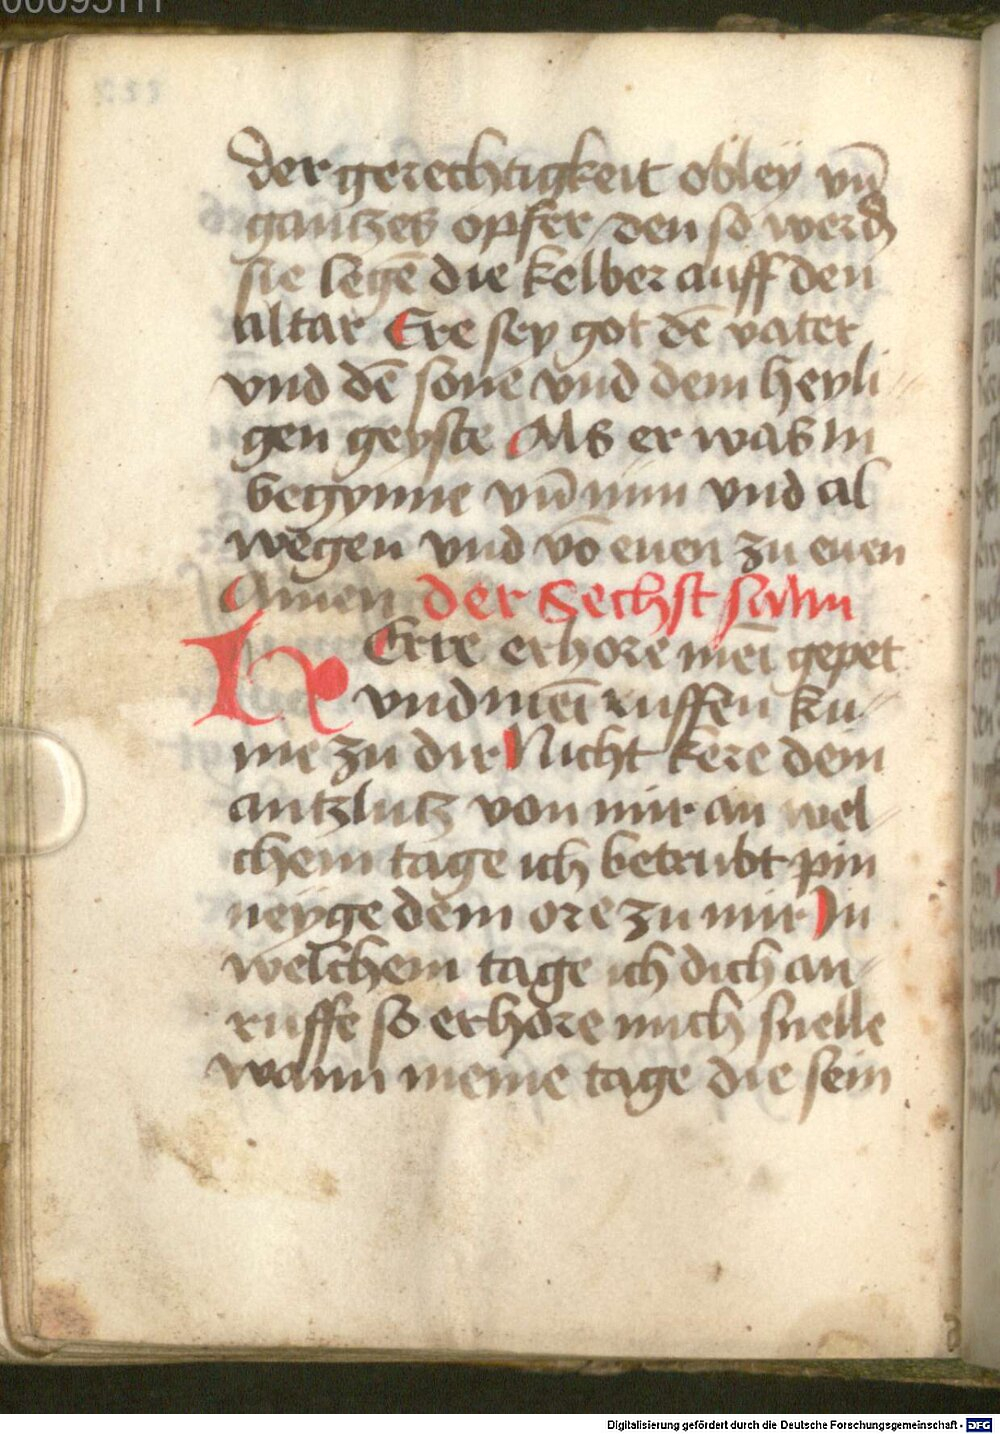 der gerechtigkeit obley vn̄
gantzes opfer den so werdn̄
sie legē die kelber auff den
altar Ere sey got dē vater
vnd dē sone vnd dem heyli
gen geyste Als er was In
begynne vn̄ nun vnd al
wegen vnd vō ewen zu ewen
Amen der Sechst salm
HErre erhore meī gepet
vnd meī ruffen ku
me zu dir Nicht kere dein
antzlutz von mir an wel
chem tage ich betrubt pin
neyge dein ore zu mir In
welchem tage ich dich an
ruffe so erhore mich snelle
wann meine tage die sein
Digitalisierung gefördert durch die Deutsche Forschungsgemeinschaft - DFG